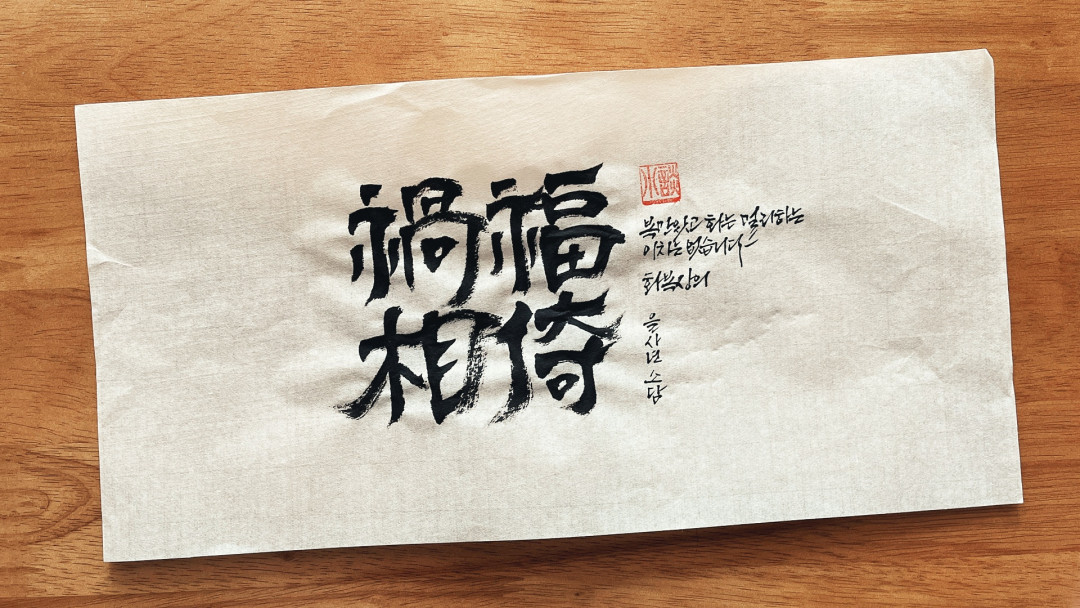 禍福
相倚
小談
복만 있고 화는 멀리하는
이치는 없습니다
화복상의
을사년 소담